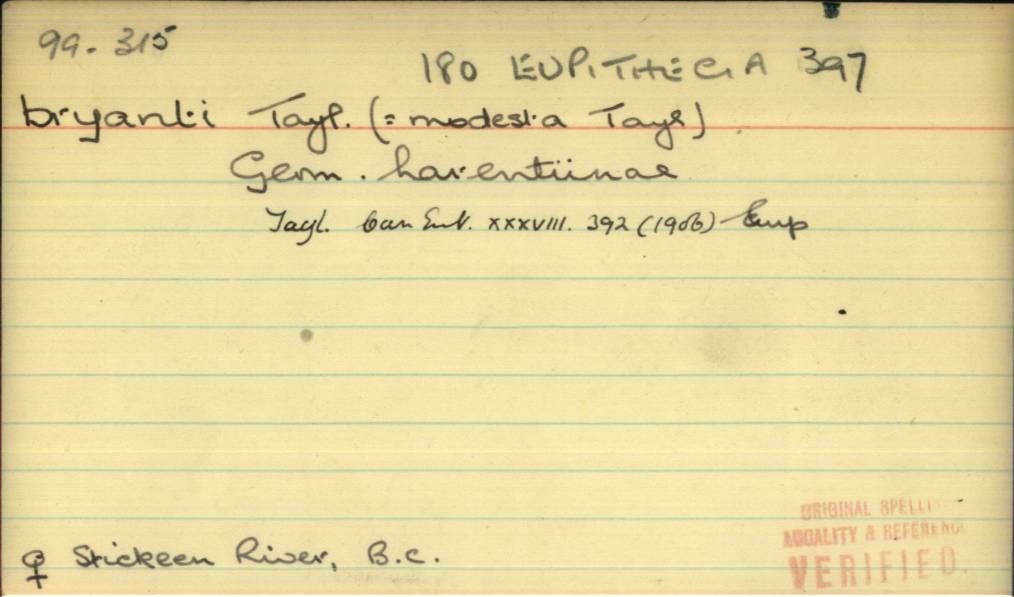 99-315
180 EUPITHECIA 397
bryanti Tayl. (= modesta Tayl)
Geom. Larentiinae
Tayl. Can Ent. XXXVIII. 392 (1906) Eup
♀ Stickeen River, B.C.
ORIGINAL SPELLI
LOCALITY & REFERENC
VERIFIED.